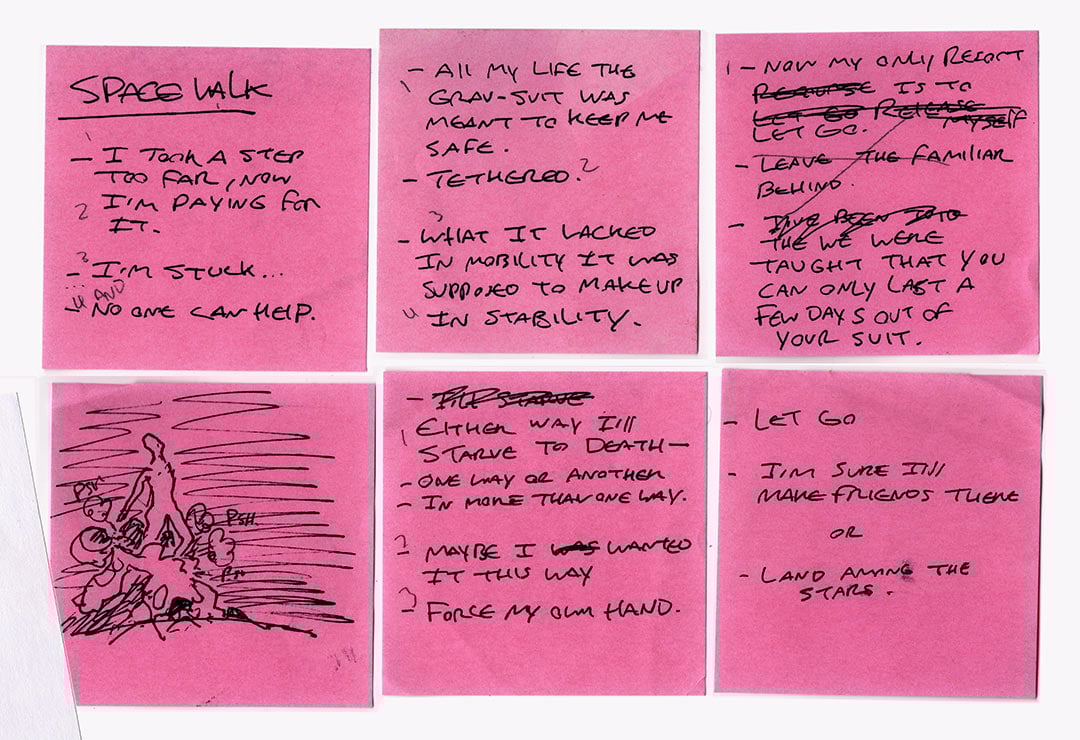 SPACE WALK
1
- I TOOK A STEP
TOO FAR, NOW
2 I'M PAYING FOR
IT.
3
- I'M STUCK...
4 AND
- NO ONE CAN HELP.
- All MY LIFE THE
1 GRAV-SUIT WAS
MEANT TO KEEP ME
SAFE.
- TETHERED. 2
3
- WHAT IT LACKED
IN MOBILITY IT WAS
SUPPOSED TO MAKE UP
4 IN STABILITY.
1 - NOW MY ONLY RESORT
IS TO
LET GO RELEASE
MYSELF
LET GO.
- LEAVE THE FAMILIAR
BEHIND.
- I'VE BEEN INTO
THE WE WERE
TAUGHT THAT YOU
CAN ONLY LAST A
FEW DAYS OUT OF
YOUR SUIT.
PSH
PSH
- I'LL STARVE
1 EITHER WAY I'll
STARVE TO DEATH -
- ONE WAY OR ANOTHER
- IN MORE THAN ONE WAY.
2 MAYBE I WAS WANTED
IT THIS WAY
3
- FORCE MY OWN HAND.
- LET GO
- I'M SURE I'll
MAKE FRIENDS THERE
OR
- LAND AMONG THE
STARS.